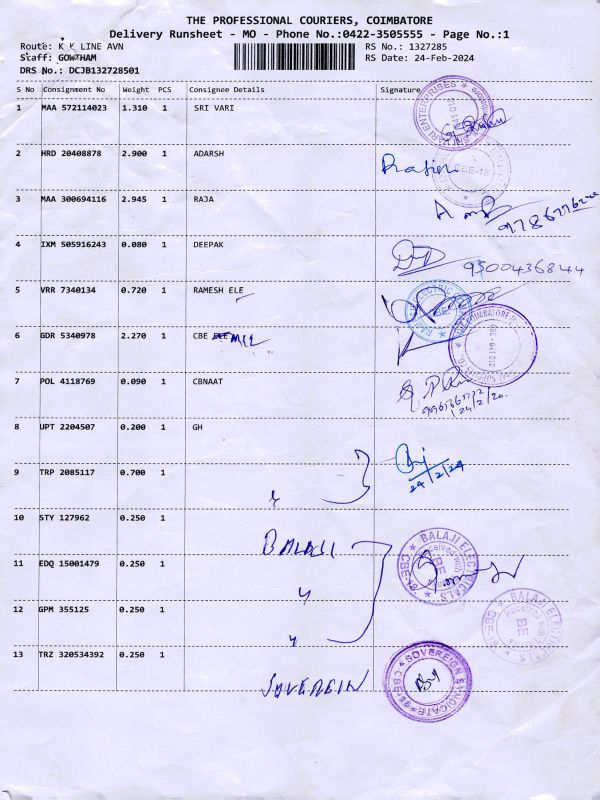 THE PROFESSIONAL COURIERS, COIMBATORE
Delivery Runsheet - MO - Phone No.:0422-3505555 - Page No.:1
Route: K K LINE AVN RS No.: 1327285
Staff: GOWTHAM RS Date: 24-Feb-2024
DRS No.: DCJB132728501
S No Consignment No Weight PCS Consignee Details Signature
1 MAA 572114023 1.310 1 SRI VARI
2 HRD 20408878 2.900 1 ADARSH
3 MAA 300694116 2.945 1 RAJA
4 IXM 505916243 0.080 1 DEEPAK 9500436844
5 VRR 7340134 0.720 1 RAMESH ELE
6 GDR 5340978 2.270 1 CBE
7 POL 4118769 0.090 1 CBNAAT
24/2/24
8 UPT 2204507 0.200 1 GH
24/2/24
9 TRP 2085117 0.700 1
10 STY 127962 0.250 1
BALAJI
BALAJI ELECTRICALS
CBE-18
11 EDQ 15001479 0.250 1
12 GPM 355125 0.250 1
BALAJI ELECTRICALS
13 TRZ 320534392 0.250 1
SOVEREIGN SYNDICATE
SOVEREIGN